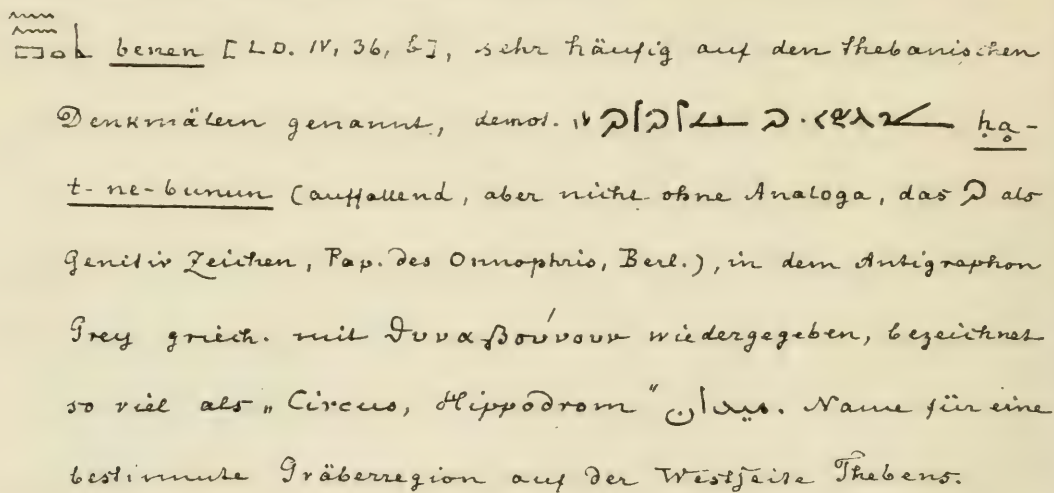 benen [LD. IV, 36, b], sehr häufig auf den thebanischen
Denkmälern genannt, demot. ḥa̤-
t-ne-bunun (auffallend, aber nicht ohne Analoga, das als
Genitiv Zeichen, Pap. des Onnophris, Berl.), in dem Antigraphon
Grey griech. mit ϑυναβούνουν wiedergegeben, bezeichnet
so viel als „Circus, Hippodrom“ ميدان. Name für eine
bestimmte Gräberregion auf der Westseite Thebens.